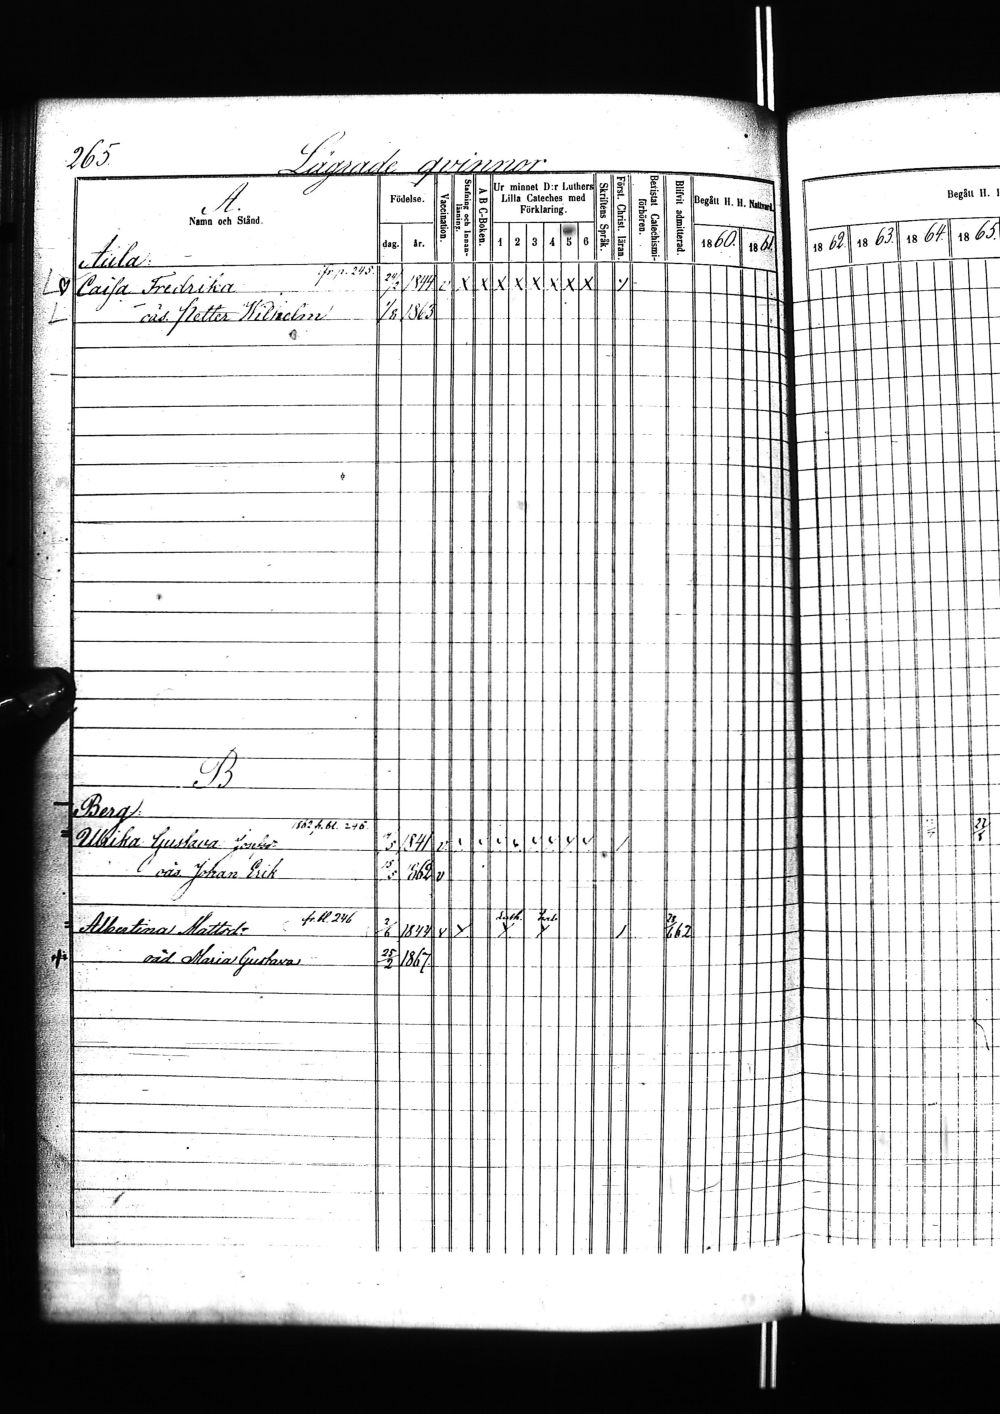 265.
Lägrade qvinnor
A.
Namn och Stånd.
Födelse.
dag.
år.
Vaccination.
Stafning och Innan-läsning.
A B C-Boken.
Ur minnet D:r Luthers Lilla Cateches med Förklaring.
1 2 3 4 5 6
Skriftens Språk.
Först. Christ. läran.
Beristat Catechismi-förhören.
Blifvit admitterad.
Begått H. H. Nattvard.
1860. 1861.
Begått H.
1862. 1863. 1864. 1865.
Aula.
Caisa Fredrika fr. p. 245. 24/2 1844 v x x x x x x x x
oäs. Petter Wilhelm 1/8 1863
B
Berg.
1862 fr. bl. 246.
Ulrika Gustava 7/5 1841 v
oäs Johan Erik 15/5 862 v
fr. bl 246
Albertina Mattsd: 2/6 1844
28/6 62
oäd. Maria Gustava 25/2 1867